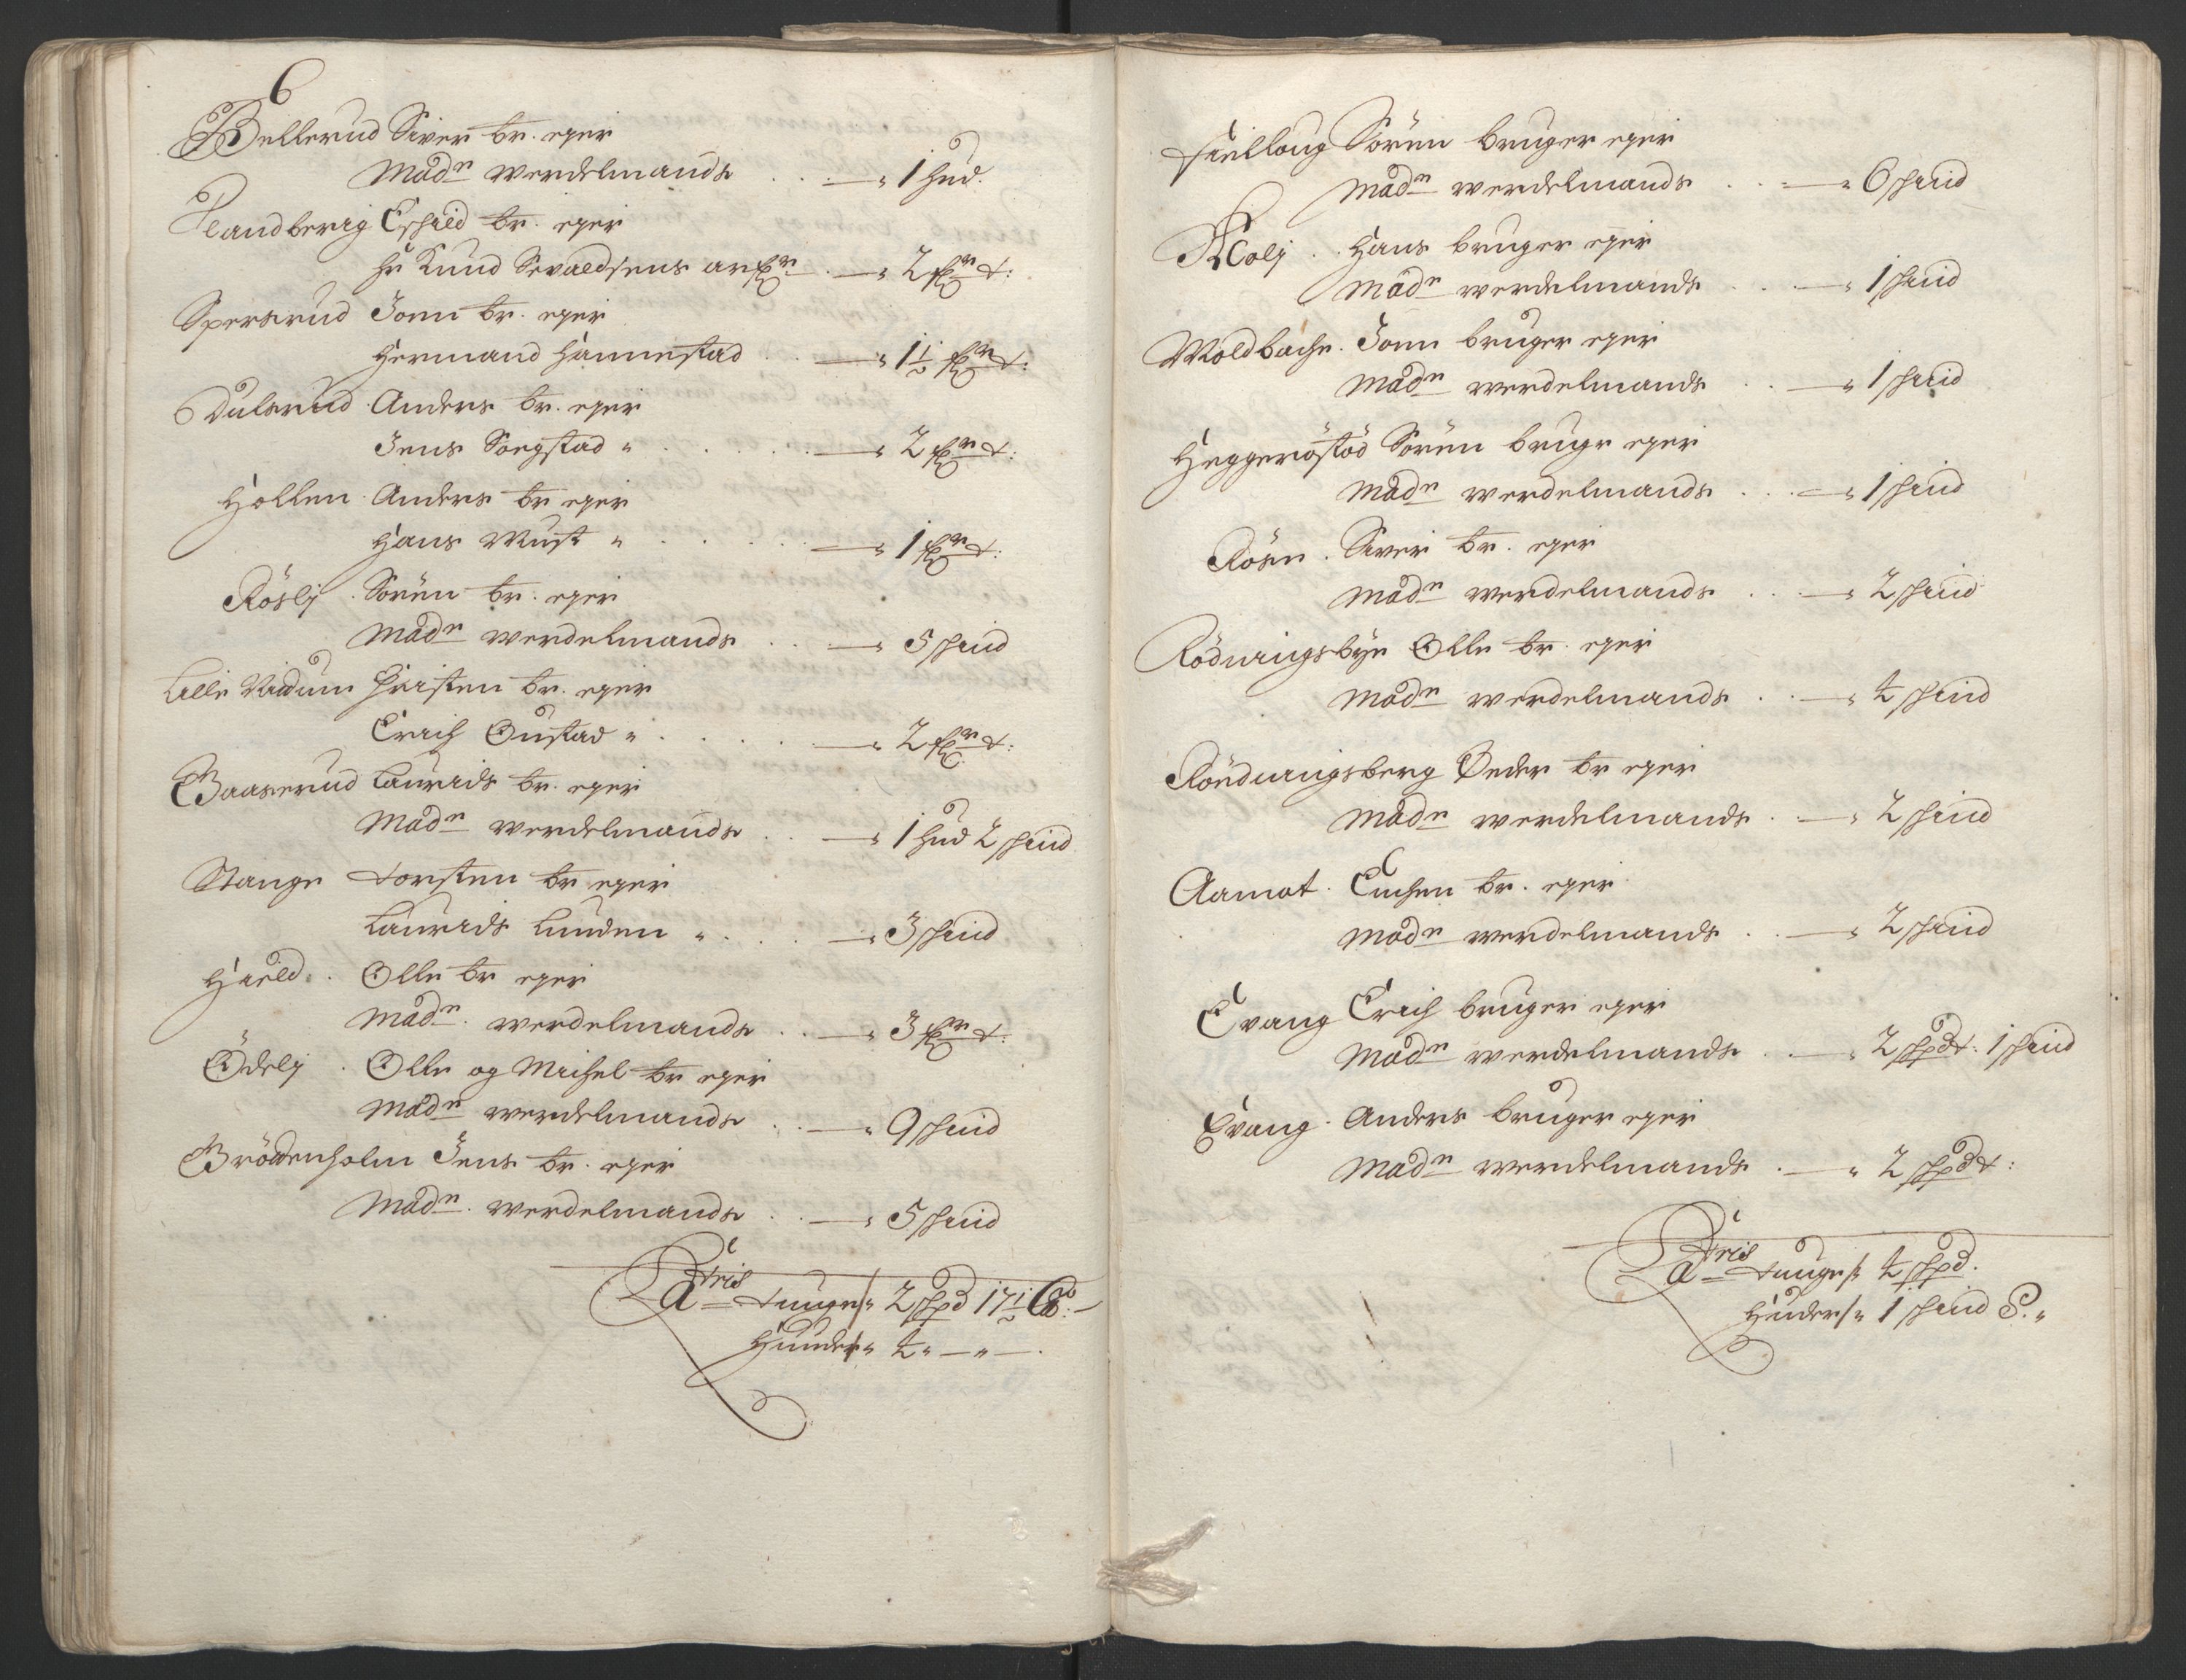 6
Bellerud Siver br. eger
Madn werdelmands . . — 1 hud.
Sandberig Eskild br. eger
Hr Knud Sevaldsens — 2
Spersrud Jonn br. eger
Hermand Hannestad . . — 1½
Dulsrud Anders br. eger
Jens Sorgstad " . . . — 2
Hollen Anders br eger
Hans Must " . . . . — 1
Röslj . Sören br. eger
Madn werdelmands . . — 5 skind
Lille Viddum Christen br. eger
Erich Oustad " . . . — 2
Baaserud Laurids br. eger
Madn werdelmands . . — 1 hud 2 skind
Stange Torsten br eger
Laurids Lunden " . . — 3 skind
Hield . Olle br eger
Madn. werdelmands . — 3
Ödelj . Olle og Michel br eger
Madn werdelmands . — 9 skind
Brödenholm Jens br. eger
Madn. werdelmands . . — 5 skind
Latris
Tunge/" 2 skpd 17½
Huuder/" 4 " — " — .
Fielloug Sören bruger eger
Madn werdelmands . . — 6 skind
Kolj . . Hans bruger eger
Madn werdelmands . . — 1 skind
Moldbache . Jonn bruger eger
Madn werdelmands . . — 1 skind
Heggeröstöd Sören bruge eger
Madn werdelmands . . . — 1 skind
Rösen . Siver br. eger
Madn werdelmands . . . — 2 skind
Röduingsbye Olle br. eger
Madn werdelmands . . — 4 skind
Rönduingsberg Peder br eger
Madn werdelmands . — 2 skind
Aamot . Enchen br. eger
Madn werdelmands . . — 2 skind
Evang Erich bruger eger
Madn werdelmands . — 2 skpdt: 1 skind
Evang . Anders bruger eger
Madn werdelmands . — " 2 skpdt:
Latris
Tunge/" 4 skpd.
Huder/" 1 skind 8."